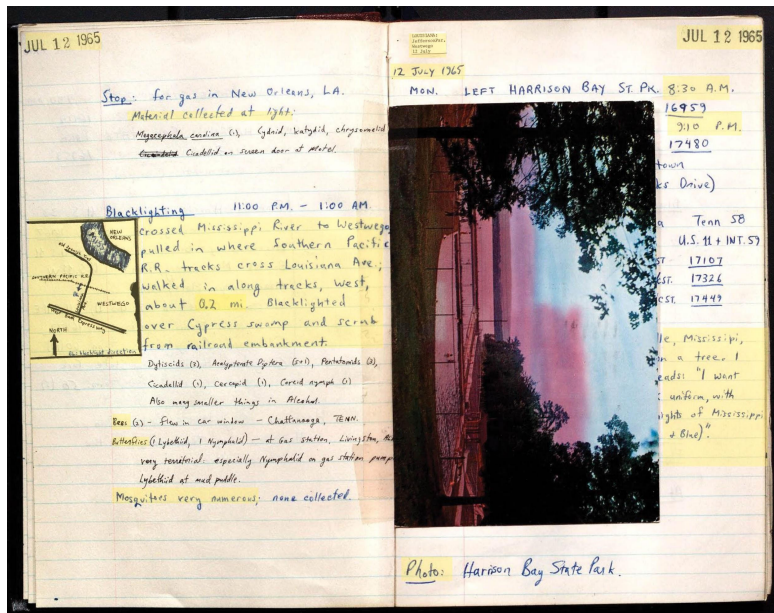 JUL 12 1965
Stop: for gas in New Orleans, LA.
Material collected at light:
Megacephala carolina (1), Cydnid, katydid, chrysomelid
Cicadellid on screen door at motel.
Blacklighting 11:00 P.M. – 1:00 A.M.
crossed Mississippi River to Westwego
pulled in where Southern Pacific
R.R. tracks cross Louisiana Ave.;
walked in along tracks, west,
about 0.2 mi. Blacklighted
over Cypress swamp and scrub
from railroad embankment.
NEW
ORLEANS
SOUTHERN PACIFIC R.R.
WESTWEGO
WEST BANK EXPRESSWAY
NORTH
blacklight direction
Dytiscids (2), Acalypterate Diptera (5+1), Pentatomids (3),
Cicadellid (1), Cercopid (1), Coreid nymph (1)
Also many smaller things in Alcohol.
Bees (2) – flew in car window – Chattanooga, TENN.
Butterflies (1 Lybethid, 1 Nymphalid) — at Gas station, Livingston,
very territorial: especially Nymphalid on gas station pump
Lybethid at mud puddle.
Mosquitoes very numerous; none collected.
LOUISIANA:
Jefferson Par.
Westwego
12 July
JUL 12 1965
12 JULY 1965
MON. LEFT HARRISON BAY ST. PK. 8:30 A.M.
16959
9:10 P.M.
17480
town
ks Drive)
a Tenn 58
U.S. 11 + INT. 59
ST. 17107
ST. 17326
CST. 17449
le, Mississippi,
n a tree. I
eads: "I want
uniform, with
ights of Mississippi
+ Blue)".
Photo: Harrison Bay State Park.